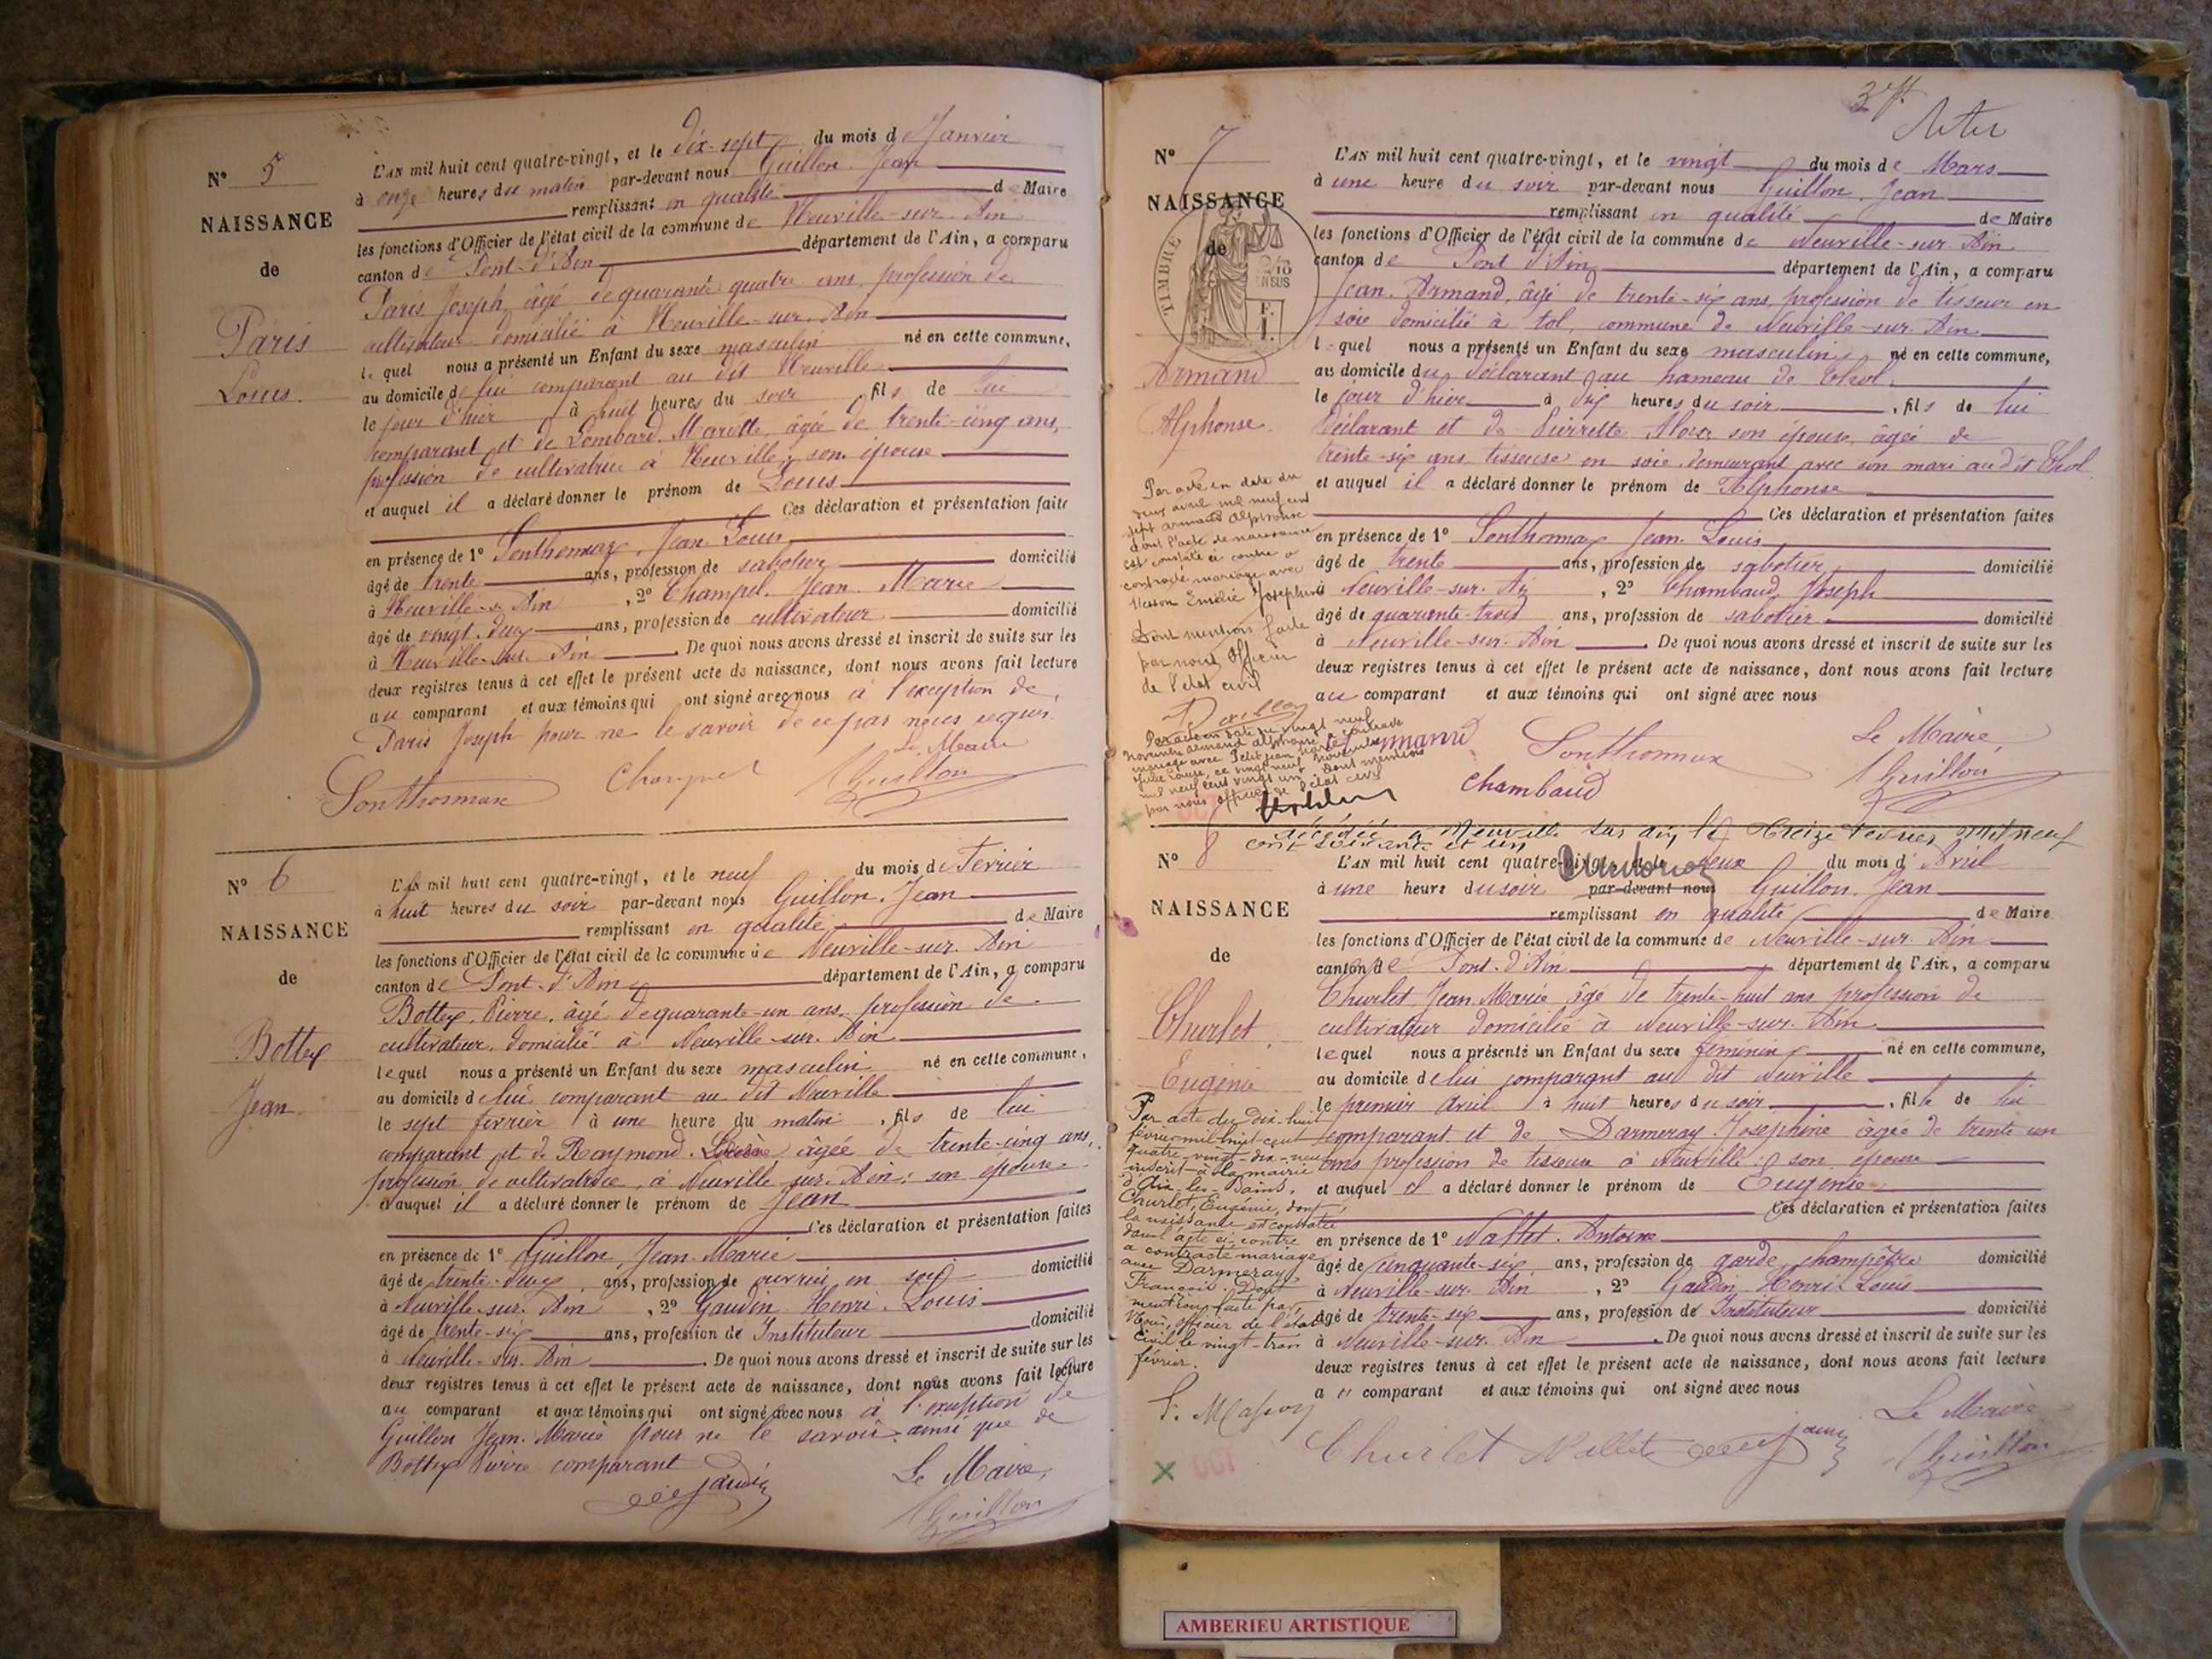 N° 5
NAISSANCE
de
Pâris
Louis.
L'AN mil huit cent quatre-vingt, et le dix-sept du mois de Janvier
à onze heures du matin par-devant nous Guillon Jean
remplissant en qualité de Maire
les fonctions d'Officier de l'état civil de la commune de Neuville-sur-Ain
canton de Pont-d'Ain département de l'Ain, a comparu
Pâris Joseph, âgé de quarante quatre ans, profession de
cultivateur domicilié à Neuville-sur-Ain
lequel nous a présenté un Enfant du sexe masculin né en cette commune,
au domicile de lui comparant au dit Neuville
le jour d'hier à huit heures du soir fils de lui
comparant et de Lombard Mariette âgée de trente-cinq ans,
profession de cultivatrice à Neuville, son épouse
et auquel il a déclaré donner le prénom de Louis
Ces déclaration et présentation faite
en présence de 1° Sonthonnax, Jean Louis
âgé de trente ans, profession de sabotier domicilié
à Neuville-s-Ain, 2° Champel Jean Marie
âgé de vingt-deux ans, profession de cultivateur domicilié
à Neuville-sur-Ain. De quoi nous avons dressé et inscrit de suite sur les
deux registres tenus à cet effet le présent acte de naissance, dont nous avons fait lecture
au comparant et aux témoins qui ont signé avec nous à l'exception de
Pâris Joseph pour ne le savoir de ce par nous requis.
Le Maire
Sonthonnax Champel Guillon
N° 6
NAISSANCE
de
Bottex
Jean.
L'AN mil huit cent quatre-vingt, et le neuf du mois de Février
à huit heures du soir par-devant nous Guillon, Jean
remplissant en qualité de Maire
les fonctions d'Officier de l'état civil de la commune de Neuville-sur-Ain
canton de Pont-d'Ain département de l'Ain, a comparu
Bottex, Pierre, âgé de quarante-un ans, profession de
cultivateur, domicilié à Neuville-sur-Ain
lequel nous a présenté un Enfant du sexe masculin né en cette commune,
au domicile de lui comparant au dit Neuville
le sept février à une heure du matin, fils de lui
comparant et de Raymond âgée de trente-cinq ans,
profession de cultivatrice, à Neuville-sur-Ain; son épouse
et auquel il a déclaré donner le prénom de Jean
Ces déclaration et présentation faites
en présence de 1° Guillon, Jean-Marie
âgé de trente-deux ans, profession de ouvrier en soie domicilié
à Neuville-sur-Ain, 2° Gaudin Henri-Louis
âgé de trente-six ans, profession de Instituteur domicilié
à Neuville-sur-Ain. De quoi nous avons dressé et inscrit de suite sur les
deux registres tenus à cet effet le présent acte de naissance, dont nous avons fait lecture
au comparant et aux témoins qui ont signé avec nous à l'exception de
Guillon Jean-Marie pour ne le savoir, ainsi que de
Bottex Pierre comparant
Le Maire,
Gaudin Guillon
3 f.
N° 7
NAISSANCE
de
TIMBRE
Armand
Alphonse.
L'AN mil huit cent quatre-vingt, et le vingt du mois de Mars
à une heure du soir par-devant nous Guillon, Jean
remplissant en qualité de Maire
les fonctions d'Officier de l'état civil de la commune de Neuville-sur-Ain
canton de Pont d'Ain département de l'Ain, a comparu
Jean Armand, âgé de trente-six ans, profession de tisseur en
soie domicilié à tol, commune de Neuville-sur-Ain
lequel nous a présenté un Enfant du sexe masculin né en cette commune,
au domicile du déclarant au hameau de Thol
le jour d'hier à dix heures du soir, fils de lui
déclarant et de Pierrette son épouse, âgée de
trente-six ans, tisseuse en soie, demeurant avec son mari au dit Thol
et auquel il a déclaré donner le prénom de Alphonse
Ces déclaration et présentation faites
en présence de 1° Sonthonnax Jean-Louis
âgé de trente ans, profession de sabotier domicilié
à Neuville-sur-Ain, 2° Chambaud, Joseph
âgé de quarante-trois ans, profession de sabotier domicilié
à Neuville-sur-Ain. De quoi nous avons dressé et inscrit de suite sur les
deux registres tenus à cet effet le présent acte de naissance, dont nous avons fait lecture
au comparant et aux témoins qui ont signé avec nous
Le Maire,
Armand Sonthonnax Guillon
Chambaud
Par acte en date du
deux avril mil neuf cent
sept armand alphonse
dont l'acte de naissance
est constaté ci contre a
contracté mariage avec
Emélie Joséphine
Dont mention faite
par nous Officier
de l'état civil
Par acte en date du vingt neuf
novembre armand alphonse a contracté
mariage avec Petitjean
ce vingt neuf novembre
mil neuf cent vingt un dont mention
par nous officier de l'état civil
décédée à Neuville sur ain le treize février mil neuf
cent soixante et un
N° 8
NAISSANCE
de
Churlet,
Eugénie
L'AN mil huit cent quatre-vingt, et le deux du mois d'Avril
à une heure du soir par-devant nous Guillon, Jean
remplissant en qualité de Maire
les fonctions d'Officier de l'état civil de la commune de Neuville-sur-Ain
canton de Pont-d'Ain département de l'Ain, a comparu
Churlet, Jean Marie, âgé de trente-huit ans, profession de
cultivateur domicilié à Neuville-sur-Ain
lequel nous a présenté un Enfant du sexe féminin né en cette commune,
au domicile de lui comparant au dit Neuville
le premier Avril à huit heures du soir, fille de lui
comparant et de Darmeray Joséphine âgée de trente un
ans profession de tisseuse à Neuville; son épouse
et auquel il a déclaré donner le prénom de Eugénie
Ces déclaration et présentation faites
en présence de 1° Nallet, Antoine
âgé de cinquante-six ans, profession de garde champêtre domicilié
à Neuville-sur-Ain, 2° Gaudin, Henri-Louis
âgé de trente-six ans, profession de Instituteur domicilié
à Neuville-sur-Ain. De quoi nous avons dressé et inscrit de suite sur les
deux registres tenus à cet effet le présent acte de naissance, dont nous avons fait lecture
au comparant et aux témoins qui ont signé avec nous
Le Maire
Churlet Nallet Gaudin Guillon
Par acte du dix-huit
février mil huit cent
quatre-vingt-dix-neuf
inscrit à la mairie
d'Aix-les-Bains,
Churlet, Eugénie, dont
la naissance est constatée
dans l'acte ci-contre
a contracté mariage
avec Darmeray
François. Dont
mention faite par
Nous, officier de l'état
civil le vingt-trois
février.
AMBERIEU ARTISTIQUE